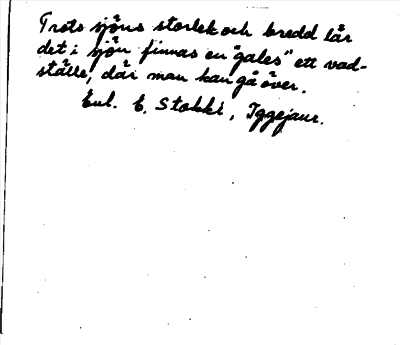 Trots sjöns storlek och bredd lär
det i sjön finnas en "gales" ett vad-
ställe, där man kan gå över.
Enl. E. Stokki, Iggejaur.